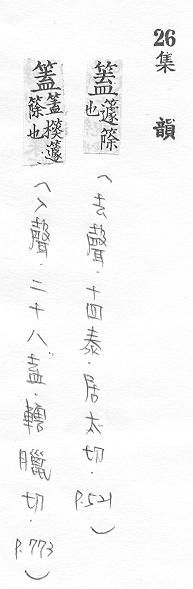 26
集韻
篕籧篨也
(去聲.十四泰.居太切.P.521)
篕篕籧篨也
(入聲.二十八盍.轄臘切.P.773)